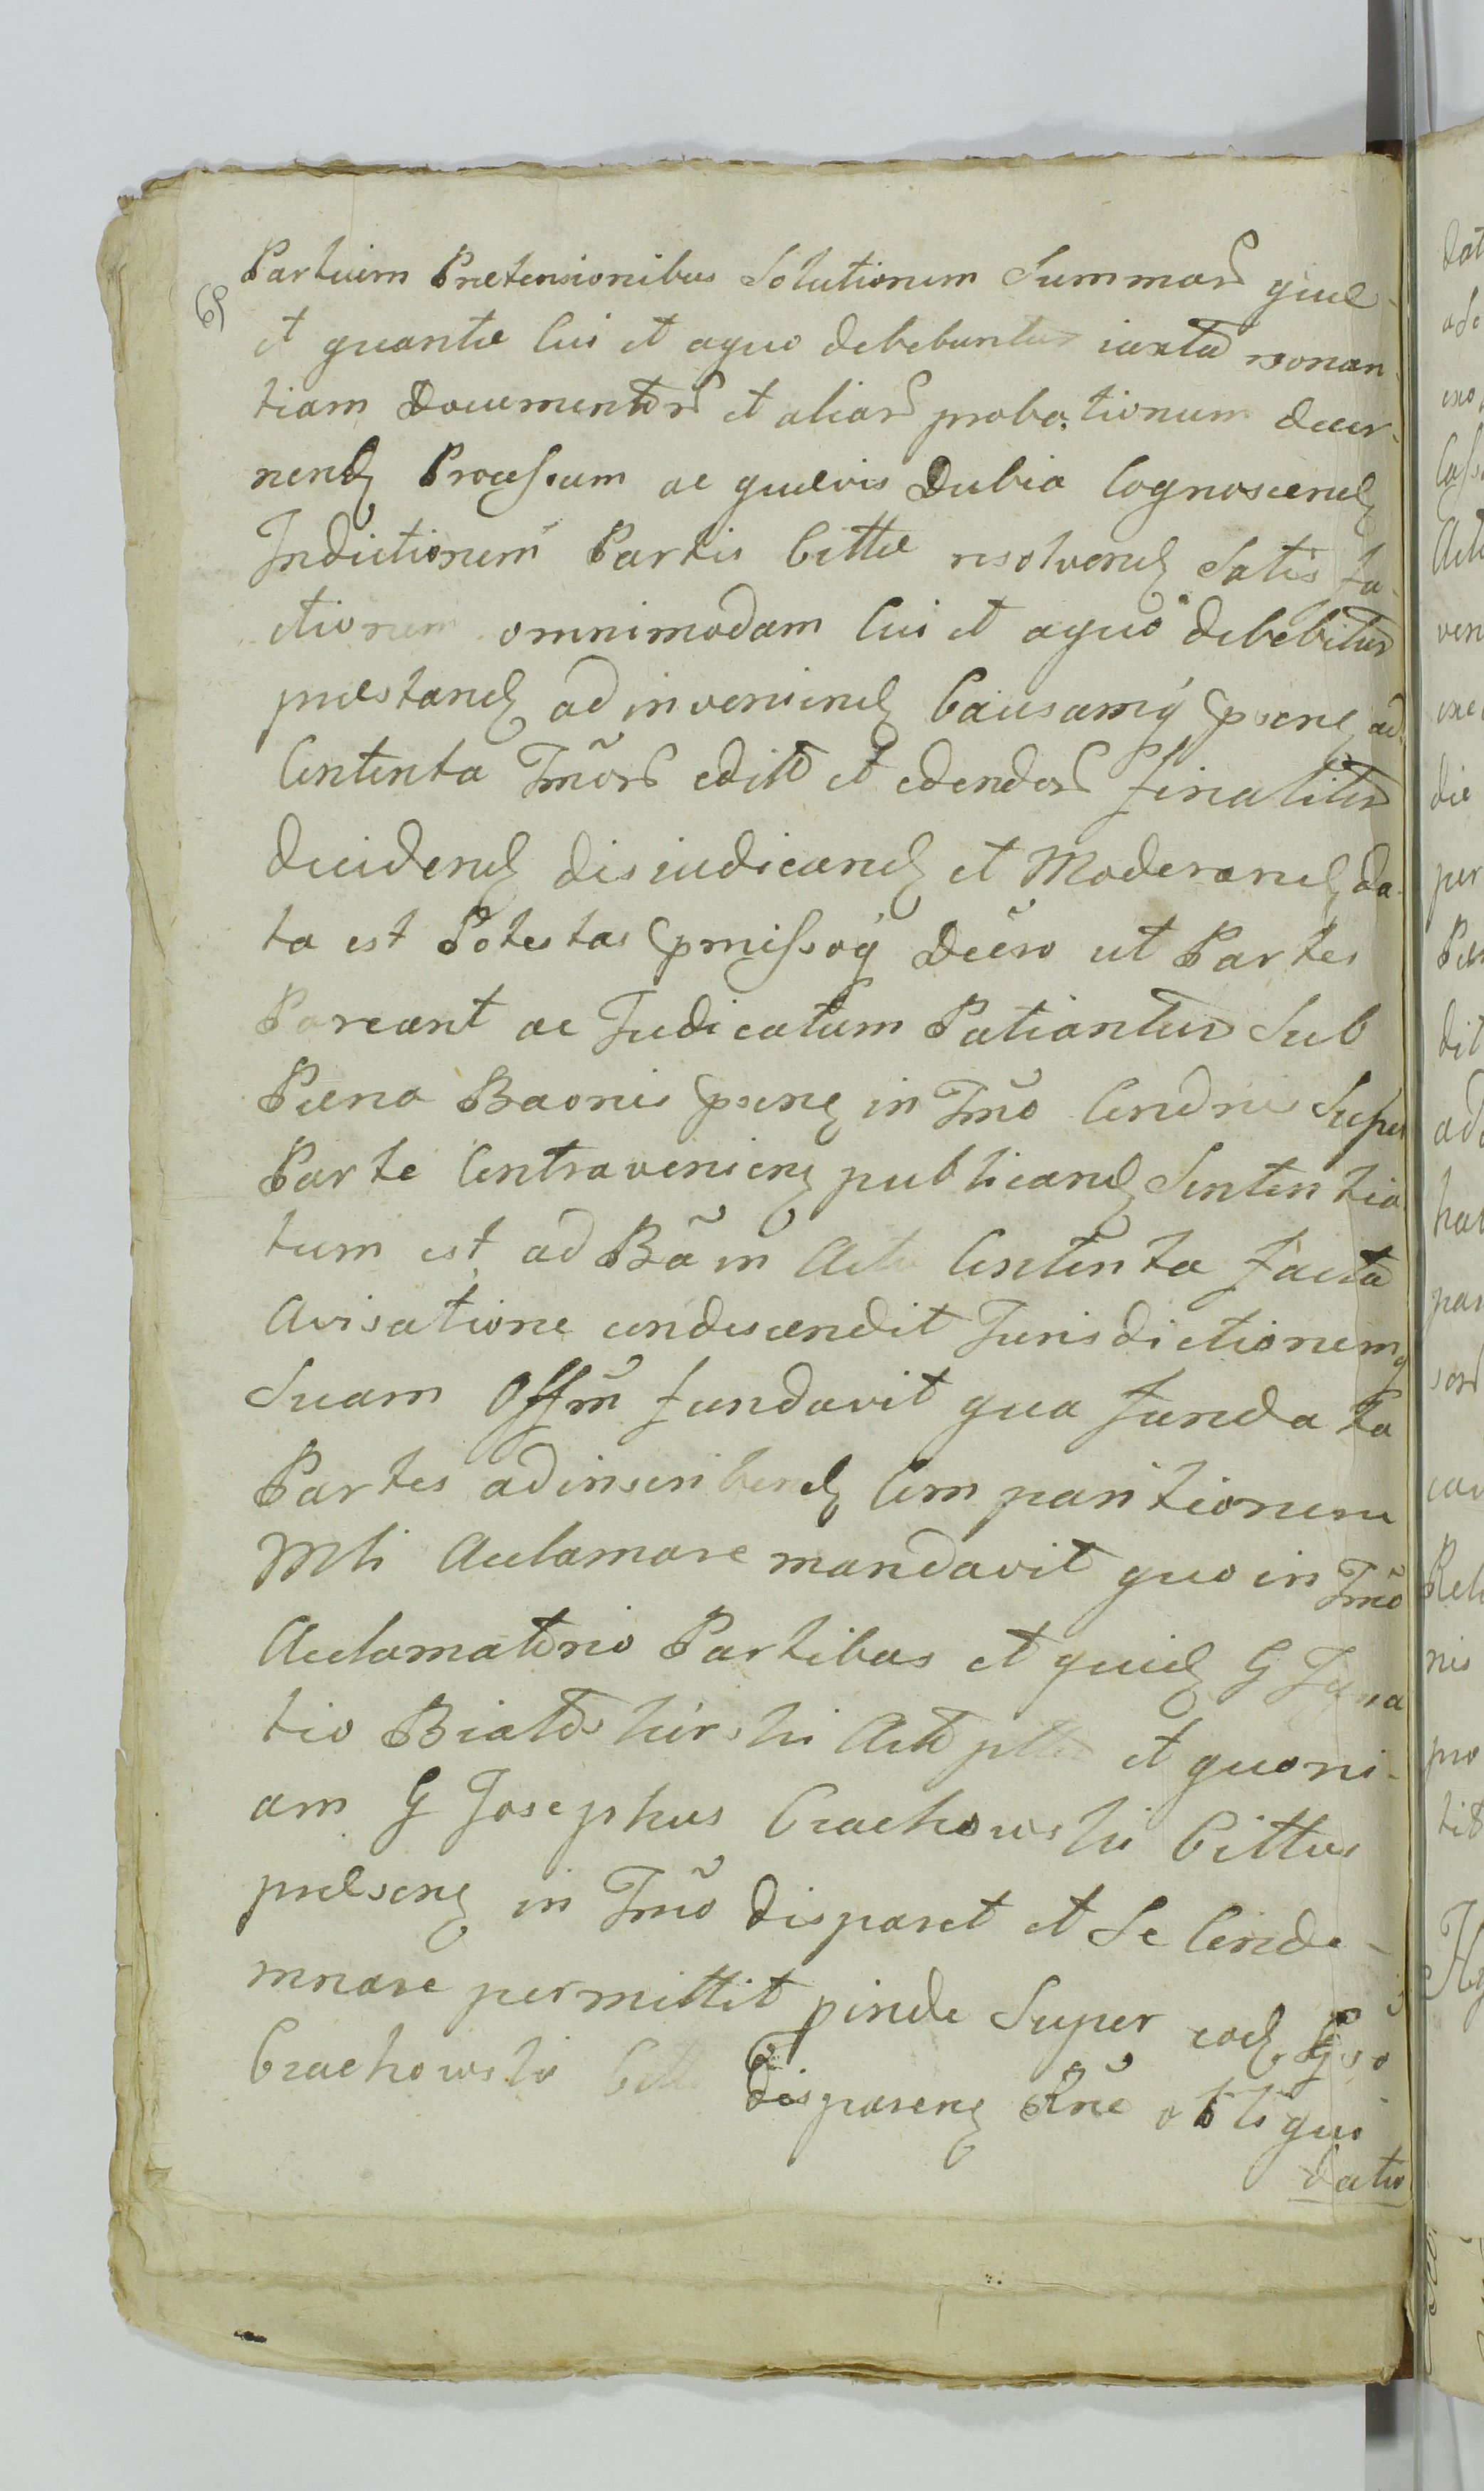 69
Partium Prætensionibus Solutionem Summar̃ quæ
et quantæ Cui et aquo debebuntur iuxta rsonan
tiam Documentor̃ et aliar̃ probationum decer
nend Processum ac quævis Dubia Cognoscend
Indictionem Partis Cittæ resolvend Satis fa
ctionem omnimodam Cui et aquo debebitur
præstand ad inveniend Causamq̃ psene ad
Contenta Tm̃or̃ edit et edendor̃ finaliter
decidend disiudicand et Moderand da
ta est Potestas pmissoq̃ Decr̃o ut Partes
Pareant ac Judicatum Patiantur Sub
Pæna Baonis psen in Tm̃o Condnis Super
Parte Contravenien publicand Sententia
tum est ad Bãm Actu Contenta facta
Avisatione condescendit Jurisdictionemq
Suam Offm̃ fundavit qua funda ta
Partes adinscribend Comparitionem
Mli Acclamare mandavit quo in Tm̃o
Acclamatorio Partibus et quid G Igna
tio Białoskurski Act pltte et quoni
am G Josephus Czachowski Cittus
præsen in Tm̃o disparet et Se Conde
mnare permittit pinde Super eod Gso
Czachowski Citto disparen Rñe obligui
datio
dat
exo
Cass
ven
exe
die
per
dit
hat
par
nis
pro
tit